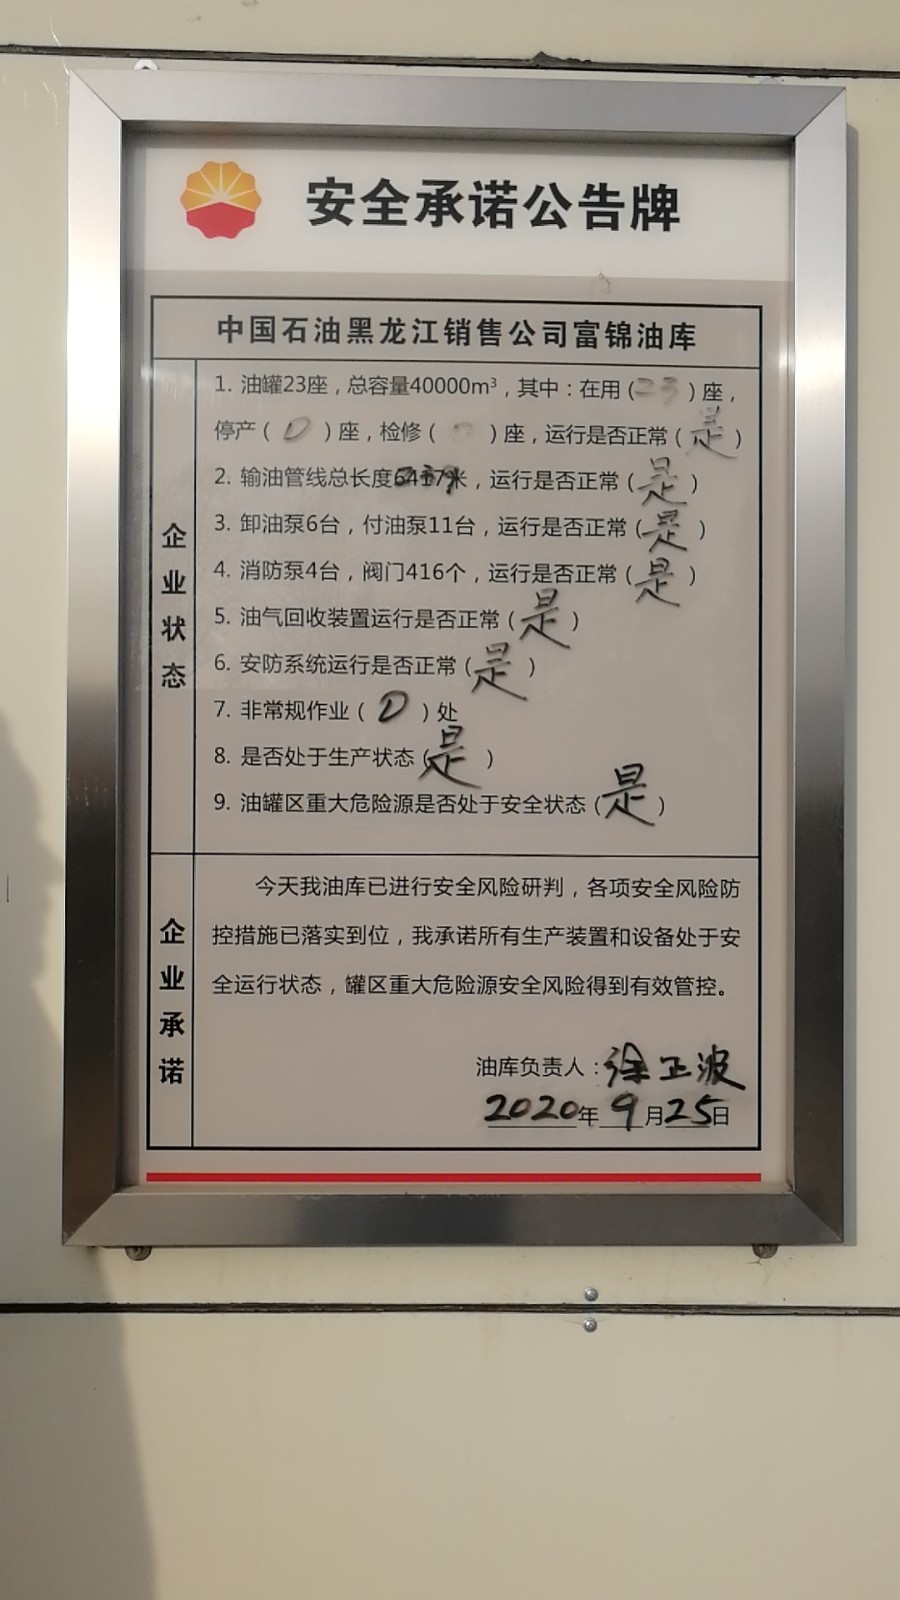 安全承诺公告牌
中国石油黑龙江销售公司富锦油库
企业状态
1. 油罐23座，总容量40000m³，其中：在用（23）座，
停产（0）座，检修（ ）座，运行是否正常（是）
2. 输油管线总长度米，运行是否正常（是）
3. 卸油泵6台，付油泵11台，运行是否正常（是）
4. 消防泵4台，阀门416个，运行是否正常（是）
5. 油气回收装置运行是否正常（是）
6. 安防系统运行是否正常（是）
7. 非常规作业（0）处
8. 是否处于生产状态（是）
9. 油罐区重大危险源是否处于安全状态（是）
企业承诺
今天我油库已进行安全风险研判，各项安全风险防
控措施已落实到位，我承诺所有生产装置和设备处于安
全运行状态，罐区重大危险源安全风险得到有效管控。
油库负责人：徐正波
2020年9月25日